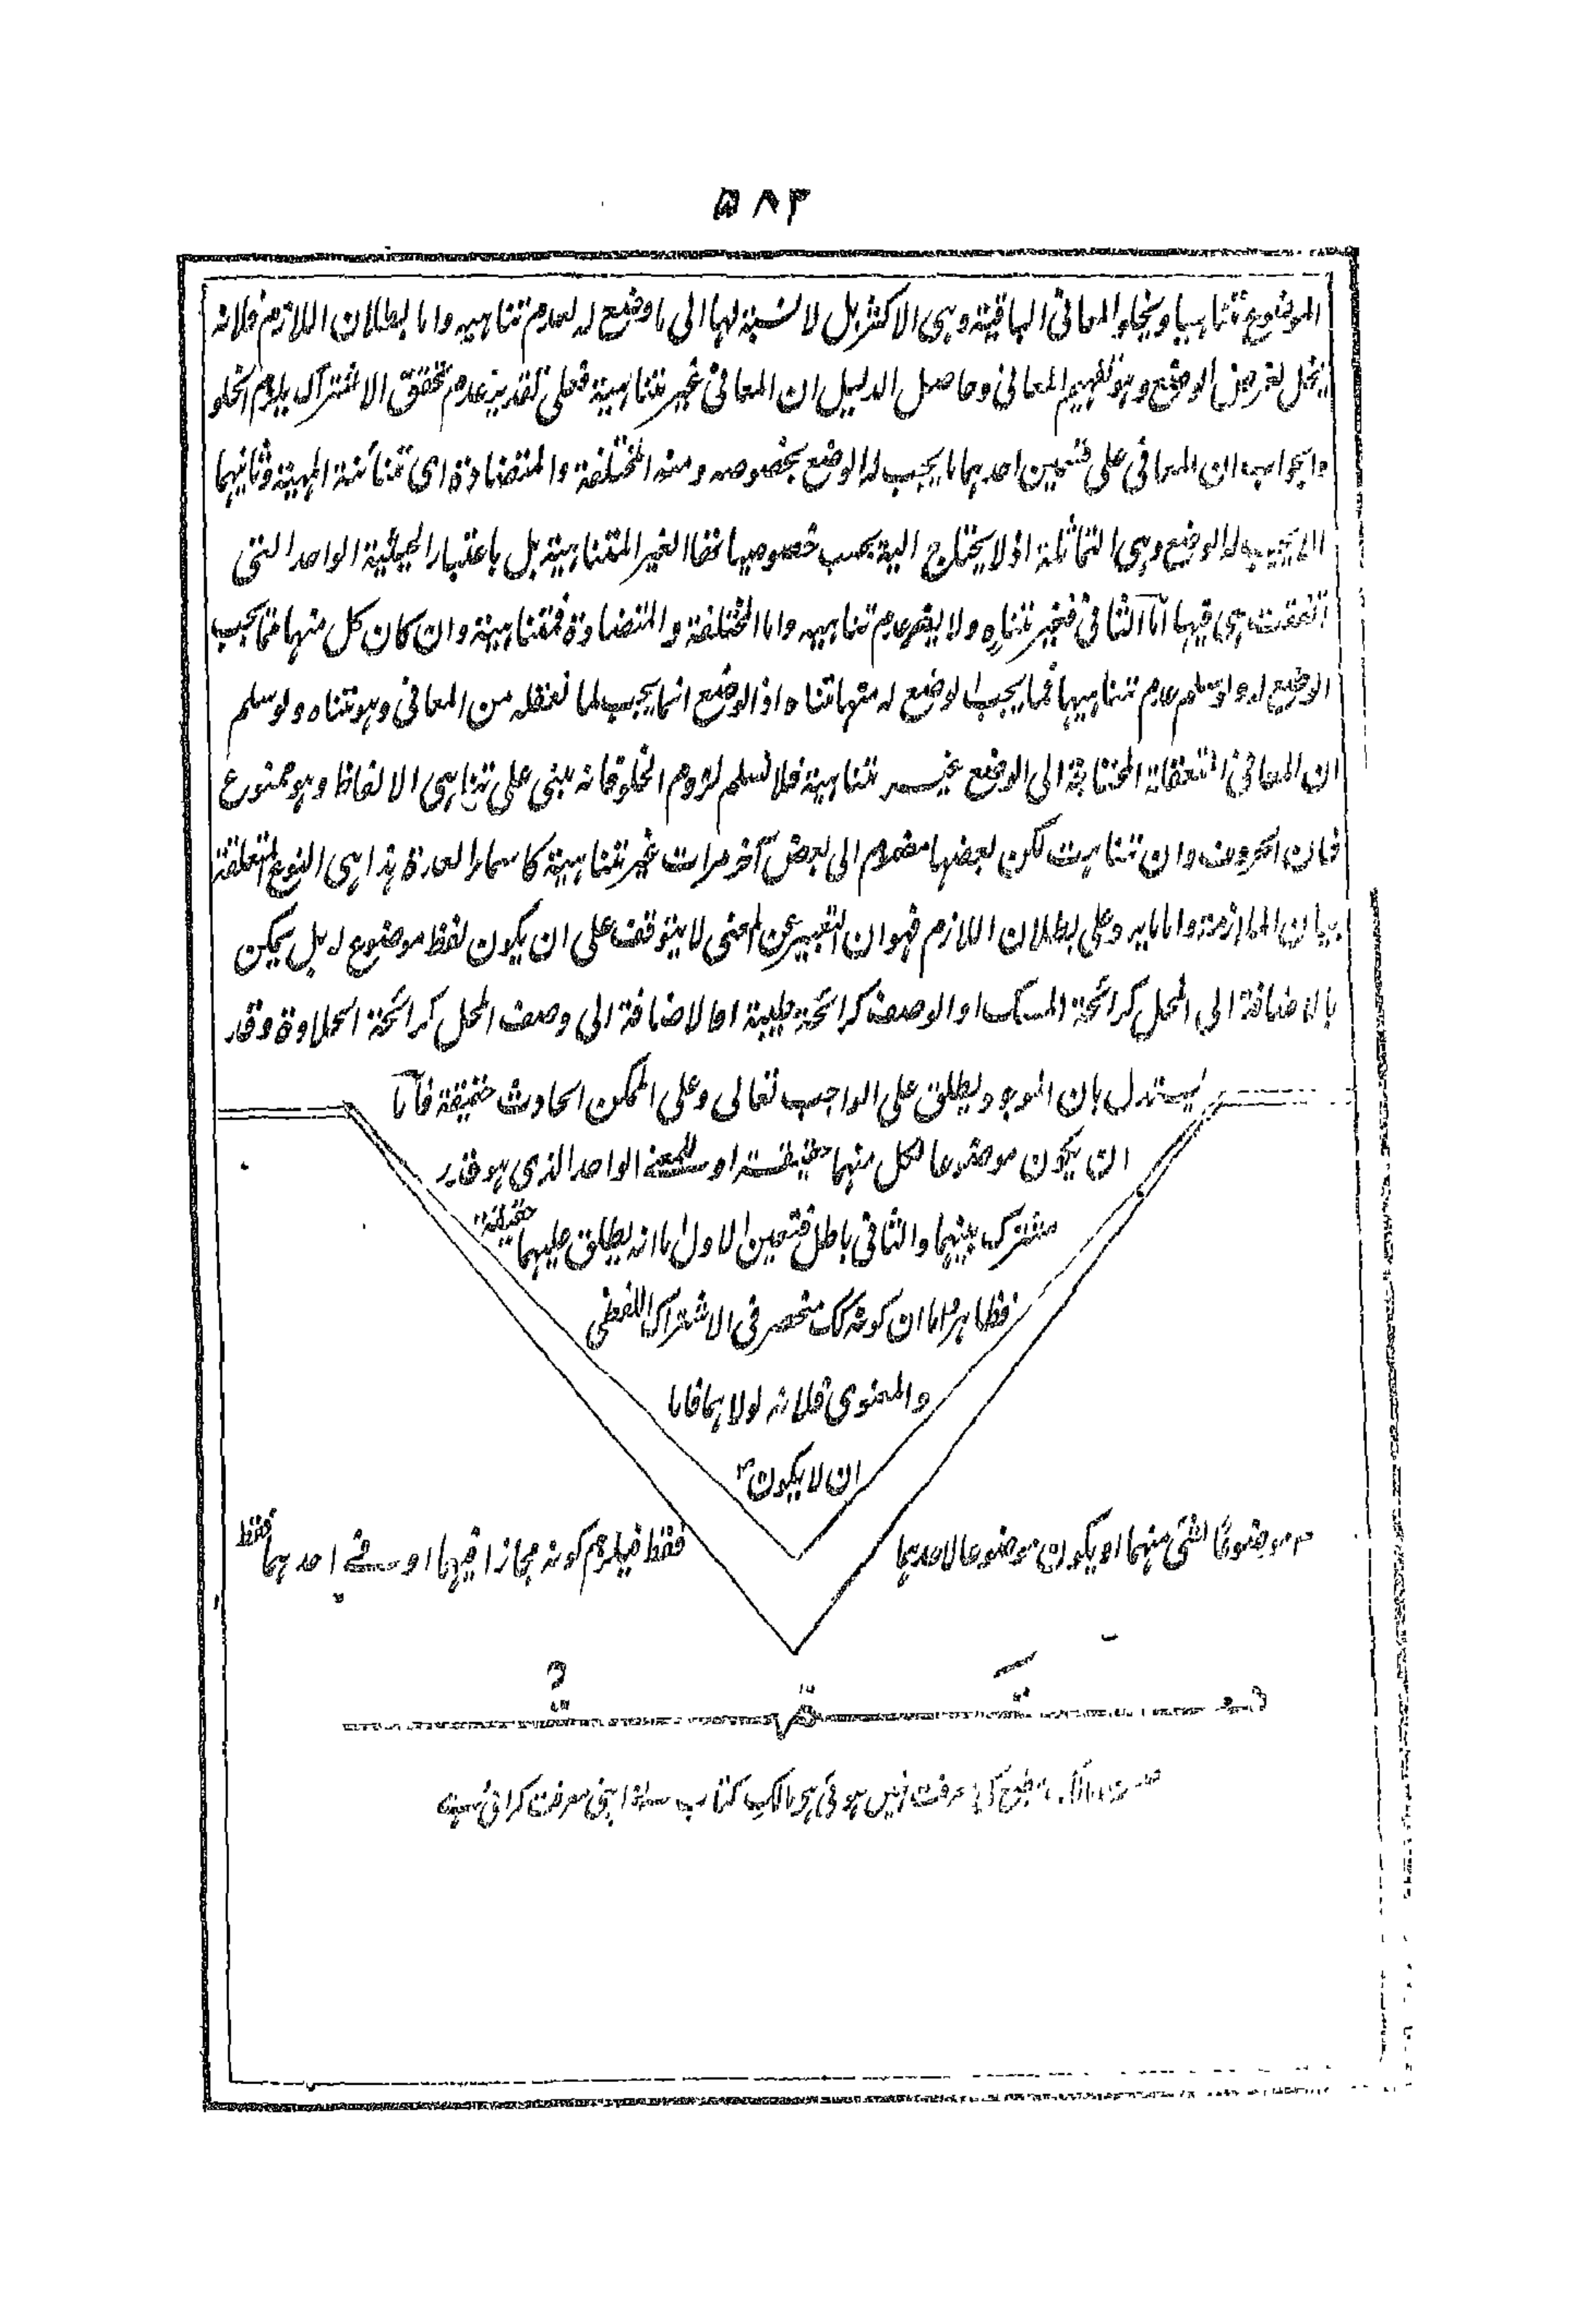 ۵۸۳
الموضوع متناهيا ويخلو المعاني الباقية وهي الاكثر بل لا نسبة لها الى ما وضع له لعدم تناهيه واما بطلان اللازم فلانه
يخل لغرض الوضع وهو تفهيم المعاني وحاصل الدليل ان المعاني غير متناهية فعلى تقدير عدم تحقق الاشتراك يلزم الخلو
والجواب ان المعاني على قسمين احدهما ما يجب له الوضع بخصوصه ومنه المختلفة والمتضادة اى الهيئة وثانيهما
لا يجب له الوضع وهي المتماثلة اذ لا يحتاج اليه بحسب خصوصياتها الغير المتناهية بل باعتبار الحيثية الواحد التي
اتفقت هي فيها اما الثاني فغير متناه ولا يضر عدم تناهيه واما المختلفة والمتضادة فمتناهية وان كان كل منها مما يجب
الوضع له ولو سلم عدم تناهيها فما يجب الوضع له منها متناه اذ الوضع انما يجب لما نعقله من المعاني وهو متناه ولو سلم
ان المعاني المتعقلة المحتاجة الى الوضع غير متناهية فلا نسلم لزوم الخلو فانه مبني على تناهي الالفاظ وهو ممنوع
فان الحروف وان تناهت لكن بعضها مضموم الى بعض آخر مرات غير متناهية كاسماء العدة هذا هي النوع المتعلقة
ببيان الملازمة واما ما يرد على بطلان اللازم فهو ان التعبير عن المعنى لا يتوقف على ان يكون لفظ موضوع له بل يمكن
بالاضافة الى المحل كرائحة المسك او الوصف كرائحة طيبة او الاضافة الى وصف المحل كرائحة الحلاوة وقد
يستدل بان الموجود يطلق على الواجب تعالى وعلى الممكن الحادث حقيقة فاما
ان يكون موضوعا لكل منهما حقيقة او للمعنى الواحد الذي هو قدر
مشترك بينهما والثاني باطل فتعين الاول اما انه يطلق عليهما حقيقة
فظاهر واما ان كونه كك منحصر في الاشتراك اللفظي
والمعنوي فلانه لولاهما فاما
ان لا يكون ۳
۳ موضوعا لشئ منهما او يكون موضوعا لاحدهما
فقط فيلزم كونه مجازا فيهما او في احدهما فقط
تمت
نہیں ہوتی ہی مالک کتاب نے اپنی معرفت کرائی ہے